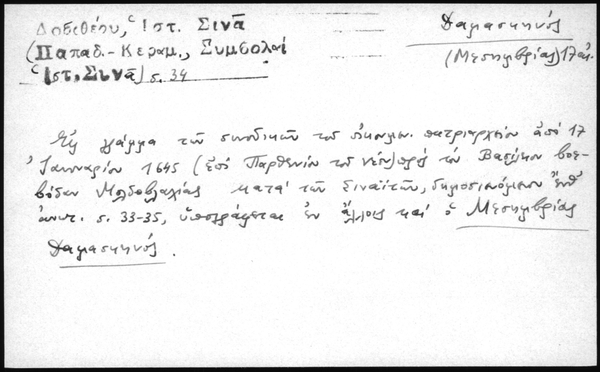 Δοσιθέου, Ἱστ. Σινᾶ
(Παπαδ.-Κεραμ., Συμβολαί
Ἱστ. Σινᾶ) s. 34
Δαμασκηνός
(Μεσημβρίας) 17 αἰ.
Εἰς γράμμα τῶν συνοδικῶν τοῦ οἰκουμεν. πατριαρχείου ἀπό 17
Ἰανουαρίου 1645 (ἐπί Παρθενίου τοῦ νέου) πρός τόν Βασίλειον βοε-
βόδαν Μολδοβλαχίας κατά τῶν Σιναϊτῶν, δημοσιευόμενον ἔνθ'
ἀνωτ. s. 33-35, ὑπογράφεται ἐν ἄλλοις καί ὁ Μεσημβρίας
Δαμασκηνός.